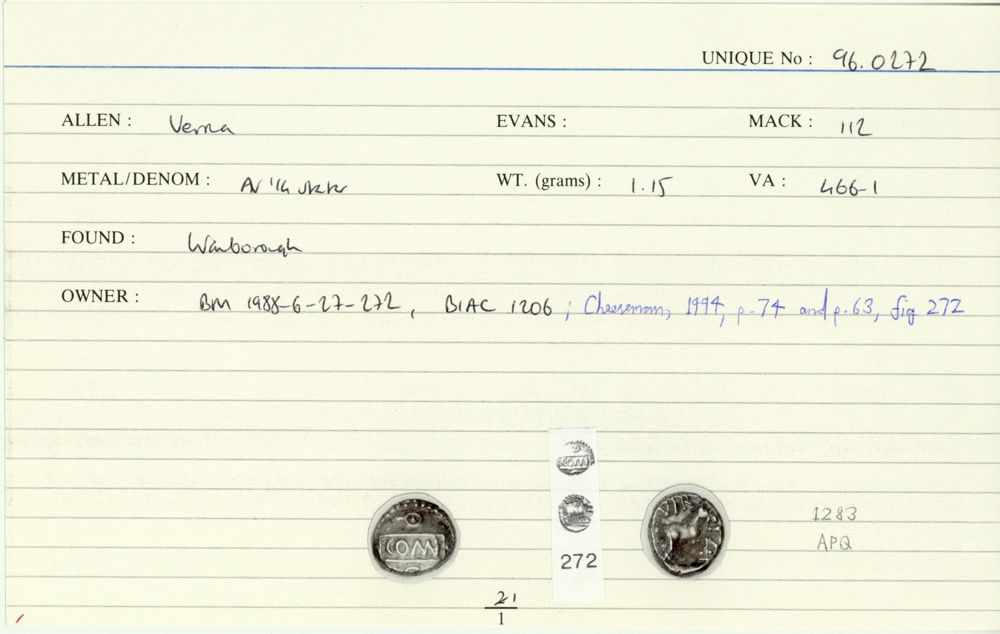 UNIQUE No : 96.0272
ALLEN : Verica EVANS : MACK : 112
METAL/DENOM : AV 1/4 stater WT. (grams) : 1.15 VA : 466-1
FOUND : Wanborough
OWNER : BM 1988-6-27-272, BIAC 1206 ; Cheeseman, 1994, p.74 and p.63, fig 272
COM
COM VIR
272
1283
APQ
21
1